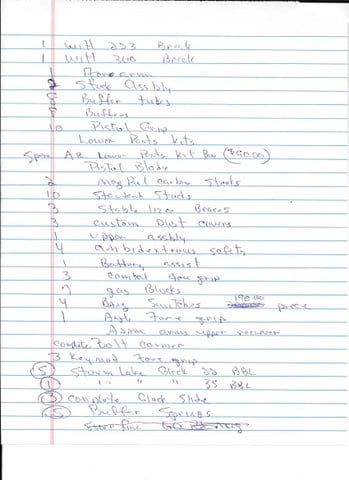 1 Witt 223 Break
1 Witt 300 Break
1 Fore arm
2 Stock Assbly
8 Buffer tubes
Buffers
10 Pistol Grip
Lower Parts Kits
Spare AR Lower Parts Kit Box ($90.00)
Pistol Blocks
2 MagPul carbine Stocks
10 Standard Stocks
3 Stablelizer Braces
3 custom Dust covers
1 upper assbly
4 ambidextrous safety
1 Battery assist
3 fore grip
7 gas Blocks
4 Switches 190.00 piece
1 Angle Fore grip
Adam arms upper receiver
complete Bolt carrier
3 Keymod Fore grip
5 Storm Lake Glock 22 BBL
1 " " " 35 BBL
3 complete Glock Slide
5 Buffer Springs